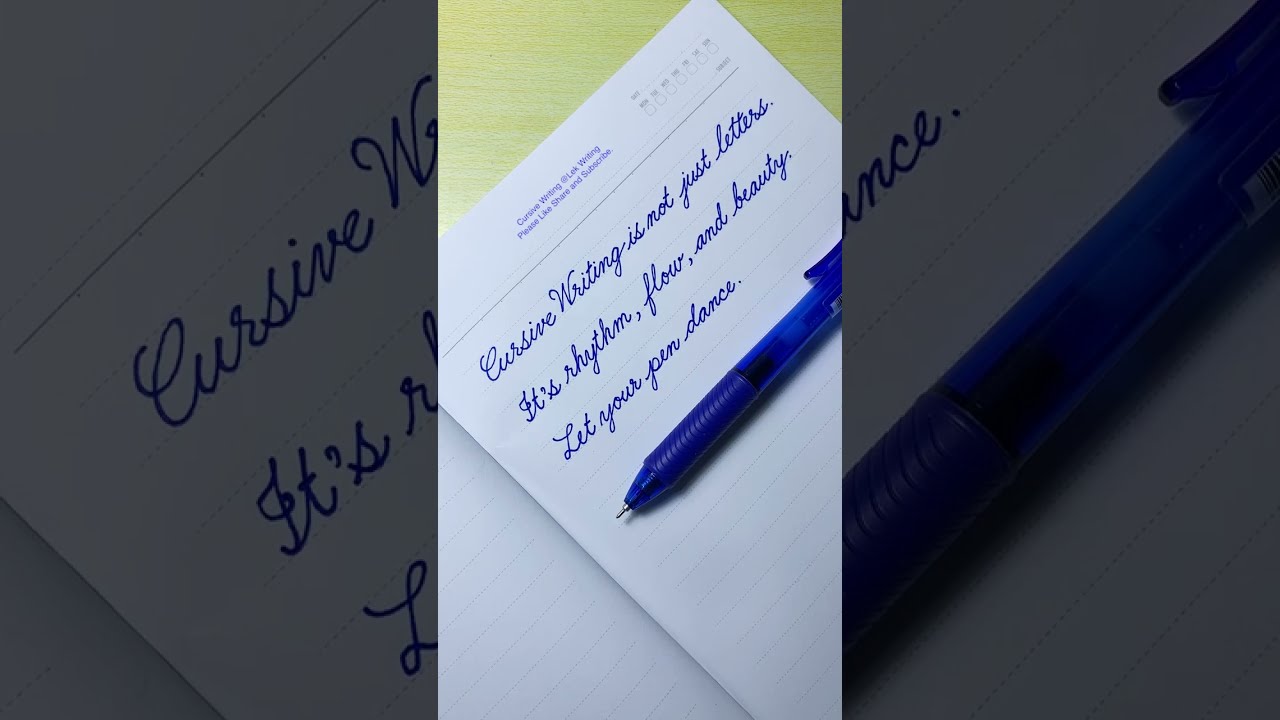 DATE
MON TUE WED THU FRI SAT SUN
SUBJECT
Cursive Writing @Lek Writing
Please Like Share and Subscribe.
Cursive Writing is not just letters.
It's rhythm, flow, and beauty.
Let your pen dance.